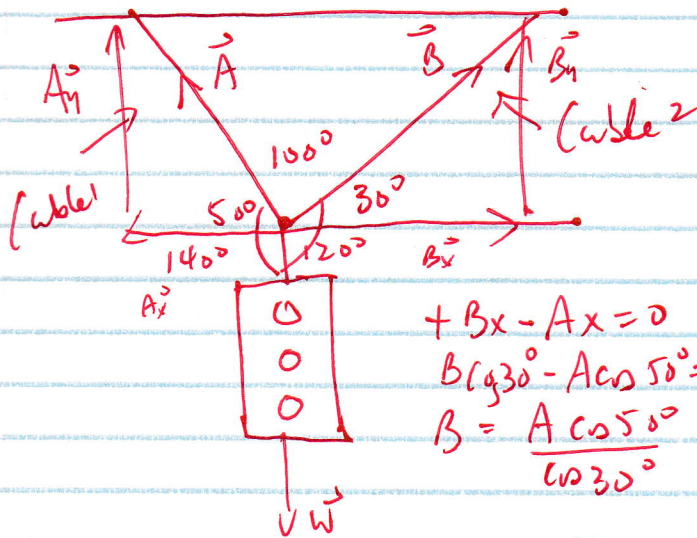 A⃗
B⃗
A⃗y
B⃗y
Cable 2
100°
Cable 1
50°
30°
140°
120°
B⃗x
A⃗x
+Bx - Ax = 0
Bcos30° - Acos50° =
B = A cos50°
cos30°
W⃗